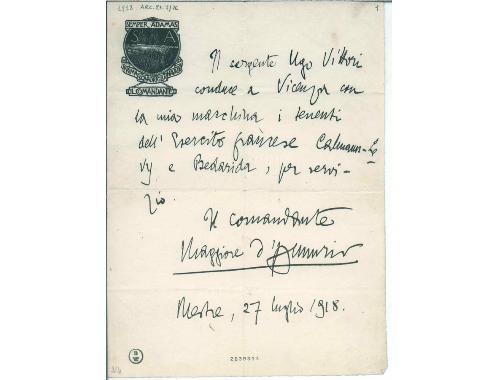 1918 ARC.
1
SEMPER ADAMAS
S A
IL COMANDANTE
Il sergente Ugo Vittori
conduce a Vicenza con
la mia macchina i tenenti
dell'Esercito francese Calmann-Lé
vy e Bedarida, per servi-
zio.
Il comandante
Maggiore d'Annunzio
Mestre, 27 luglio 1918.